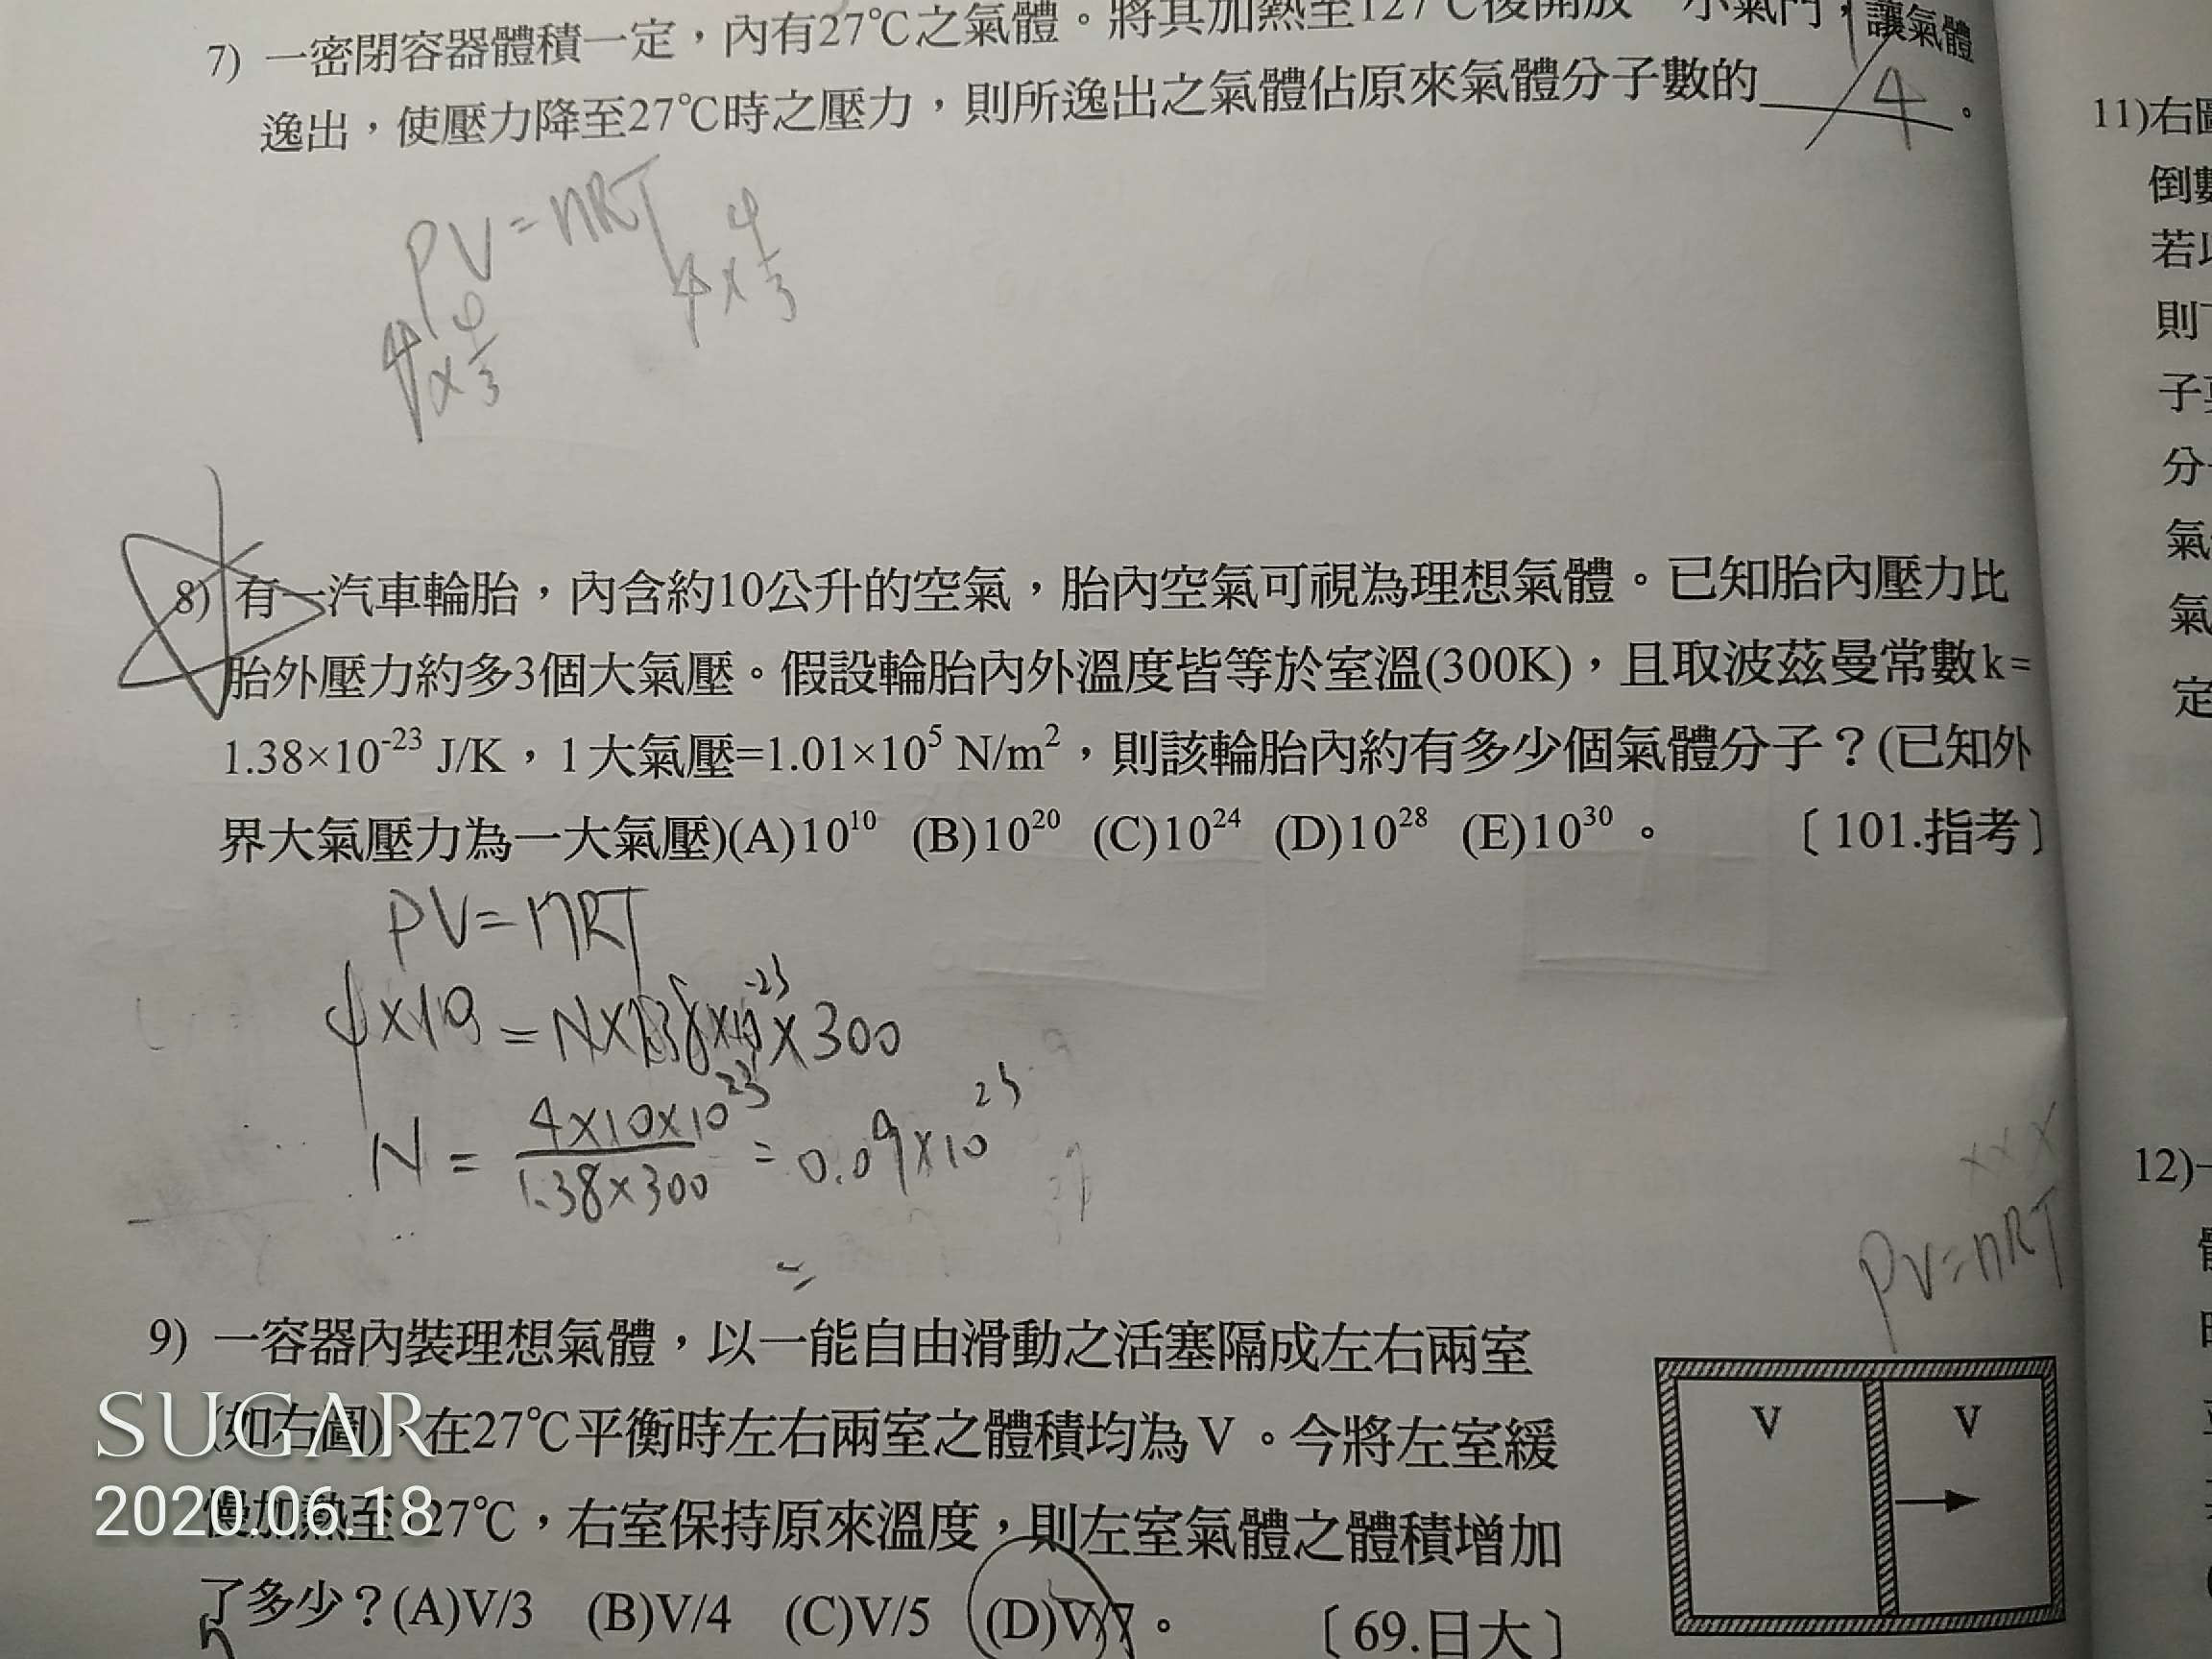 7) 一密閉容器體積一定，內有27℃之氣體。將其加熱至127℃後開放一小氣門，讓氣體
逸出，使壓力降至27℃時之壓力，則所逸出之氣體佔原來氣體分子數的 1/4 。
PV=nRT
4×1/3
4×1/3
8) 有一汽車輪胎，內含約10公升的空氣，胎內空氣可視為理想氣體。已知胎內壓力比
胎外壓力約多3個大氣壓。假設輪胎內外溫度皆等於室溫(300K)，且取波茲曼常數k=
1.38×10⁻²³ J/K，1大氣壓=1.01×10⁵ N/m²，則該輪胎內約有多少個氣體分子？(已知外
界大氣壓力為一大氣壓)(A)10¹⁰ (B)10²⁰ (C)10²⁴ (D)10²⁸ (E)10³⁰。〔101.指考〕
PV=nRT
4×10=N×1.38×10⁻²³×300
N=4×10×10²³/1.38×300=0.09×10²³
PV=nRT
9) 一容器內裝理想氣體，以一能自由滑動之活塞隔成左右兩室
(如右圖)、在27℃平衡時左右兩室之體積均為V。今將左室緩
慢加熱至127℃，右室保持原來溫度，則左室氣體之體積增加
了多少？(A)V/3 (B)V/4 (C)V/5 (D)V/7。〔69.日大〕
V V
SUGAR
2020.06.18
11)右
倒
若
則
子
分
氣
氣
定
12)